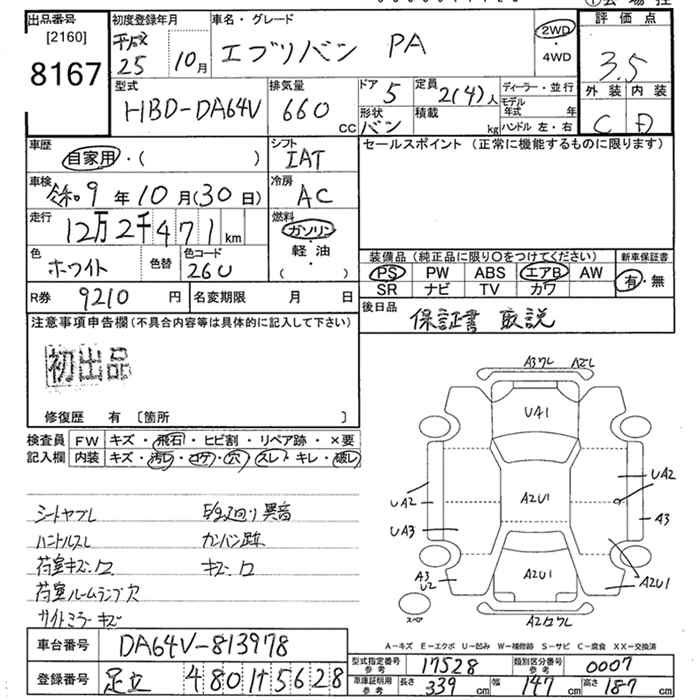 出品番号
[2160]
8167
初度登録年月
平成
25 10月
車名・グレード
エブリバン PA
2WD
・
4WD
評価点
3.5
外装 内装
C D
型式
HBD-DA64V
排気量
660
CC
ドア 5
形状
バン
定員 2(4)人
積載 kg
ディーラー・並行
モデル
年式 年
ハンドル 左・右
車歴
自家用・( )
シフト
IAT
セールスポイント (正常に機能するものに限ります)
車検
令和9年10月(30日)
冷房
AC
走行
12万2千471km
燃料
ガソリン
軽油
( ・ )
色
ホワイト
色替
色コード
26U
装備品 (純正品に限り○をつけてください)
新車保証書
PS PW ABS エアB AW
SR ナビ TV カワ
有・無
R券 9210円
名変期限 月 日
後日品
保証書 取説
注意事項申告欄(不具合内容等は具体的に記入して下さい)
初出品
修復歴 有 [箇所 ]
検査員
記入欄
FW キズ・飛石・ヒビ割・リペア跡・×要
内装 キズ・汚レ・コゲ・穴・スレ・キレ・破レ
シートヤブレ
ハンドルスレ
荷室キズ・ワ
荷室ルームランプ穴
サイドミラーキズ
E/G廻り異音
カンバン跡
キズ・ワ
A3ワレ A2L
UA1
UA2
UA3
A2U1
UA2
A3
A3
U2
A2U1
A2U1
スペア
A-キズ E-エクボ U-凹み W-補修跡 S-サビ C-腐食 XX-交換済
車台番号 DA64V-813978
登録番号 足立 480け5628
型式指定番号
参考
17528
類別区分番号
参考
0007
車庫証明用
参考
長さ 339cm 幅 147cm 高さ 187cm